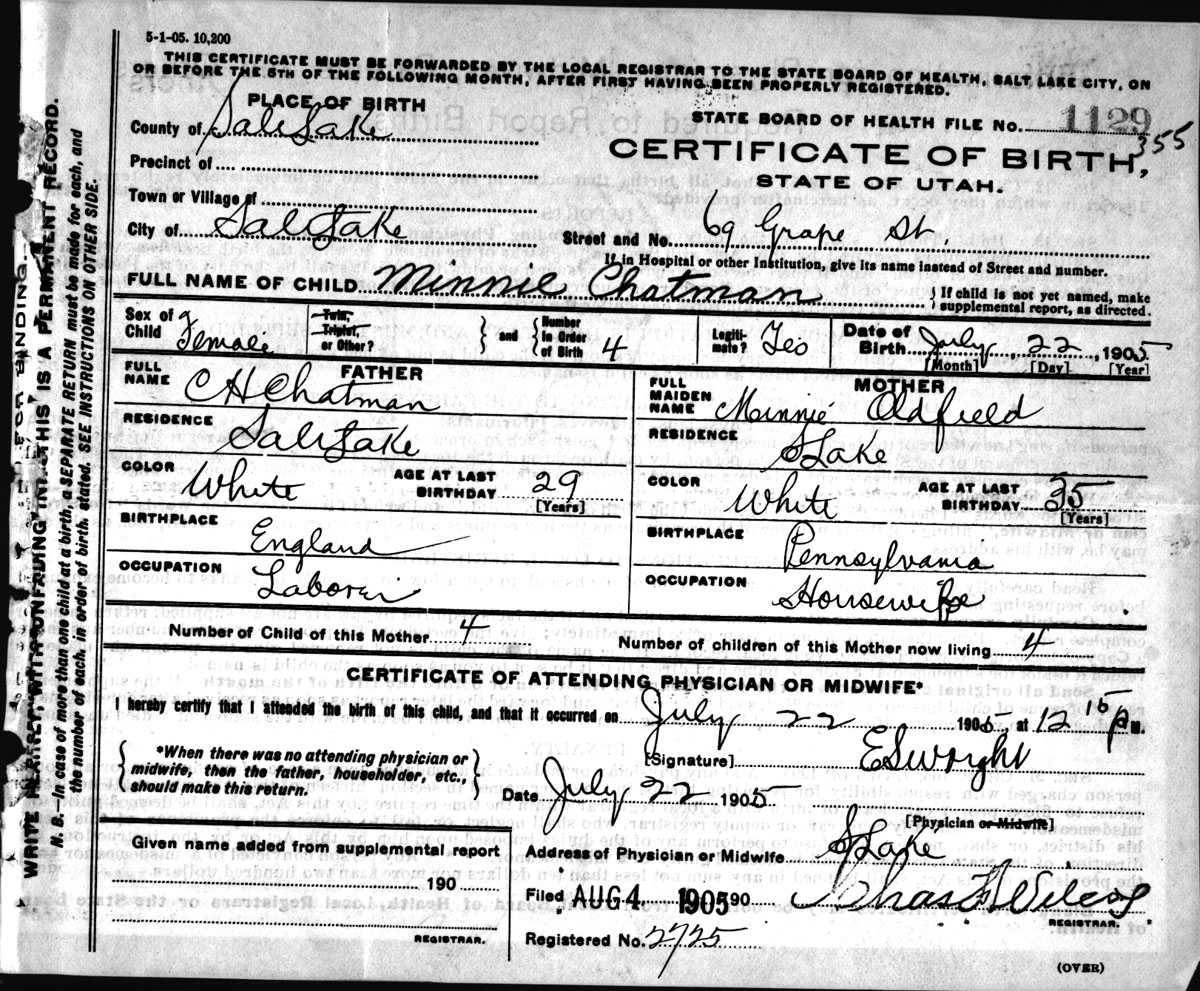 5-1-05. 10,200
THIS CERTIFICATE MUST BE FORWARDED BY THE LOCAL REGISTRAR TO THE STATE BOARD OF HEALTH, SALT LAKE CITY, ON
OR BEFORE THE 5TH OF THE FOLLOWING MONTH, AFTER FIRST HAVING BEEN PROPERLY REGISTERED.
PLACE OF BIRTH
County of Salt Lake
Precinct of
Town or Village of
City of Salt Lake
STATE BOARD OF HEALTH FILE No. 1129
355
CERTIFICATE OF BIRTH,
STATE OF UTAH.
Street and No. 69 Grape St.
If in Hospital or other Institution, give its name instead of Street and number.
FULL NAME OF CHILD Minnie Chatman
If child is not yet named, make
supplemental report, as directed.
Sex of Child Female
Twin, Triplet, or Other?
and
Number in Order of Birth 4
Legitimate? Yes
Date of Birth July 22, 1905
[Month] [Day] [Year]
FATHER
FULL NAME C H Chatman
RESIDENCE Salt Lake
COLOR White
AGE AT LAST BIRTHDAY 29
[Years]
BIRTHPLACE England
OCCUPATION Laborer
MOTHER
FULL MAIDEN NAME Minnie Oldfield
RESIDENCE S Lake
COLOR White
AGE AT LAST BIRTHDAY 35
[Years]
BIRTHPLACE Pennsylvania
OCCUPATION Housewife
Number of Child of this Mother 4
Number of children of this Mother now living 4
CERTIFICATE OF ATTENDING PHYSICIAN OR MIDWIFE*
I hereby certify that I attended the birth of this child, and that it occurred on July 22 1905 at 12 15 P M.
*When there was no attending physician or
midwife, then the father, householder, etc.,
should make this return.
[Signature] E S Wright
Date July 22 1905
[Physician or Midwife]
Address of Physician or Midwife S Lake
Given name added from supplemental report
190
REGISTRAR.
Filed AUG 4 1905 190
Chas F Wilcox
REGISTRAR.
Registered No. 2725
(OVER)
WRITE PLAINLY, WITH UNFADING INK—THIS IS A PERMANENT RECORD.
N. B.—In case of more than one child at a birth, a SEPARATE RETURN must be made for each, and
the number of each, in order of birth, stated. SEE INSTRUCTIONS ON OTHER SIDE.